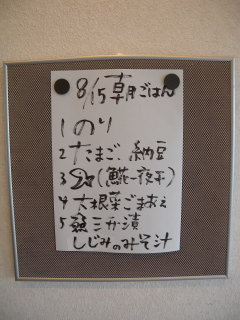 8/15 朝ごはん
1 のり
2 たまご、納豆
3 (鯤一夜干)
4 大根菜ごまあえ
5 三升漬
しじみのみそ汁